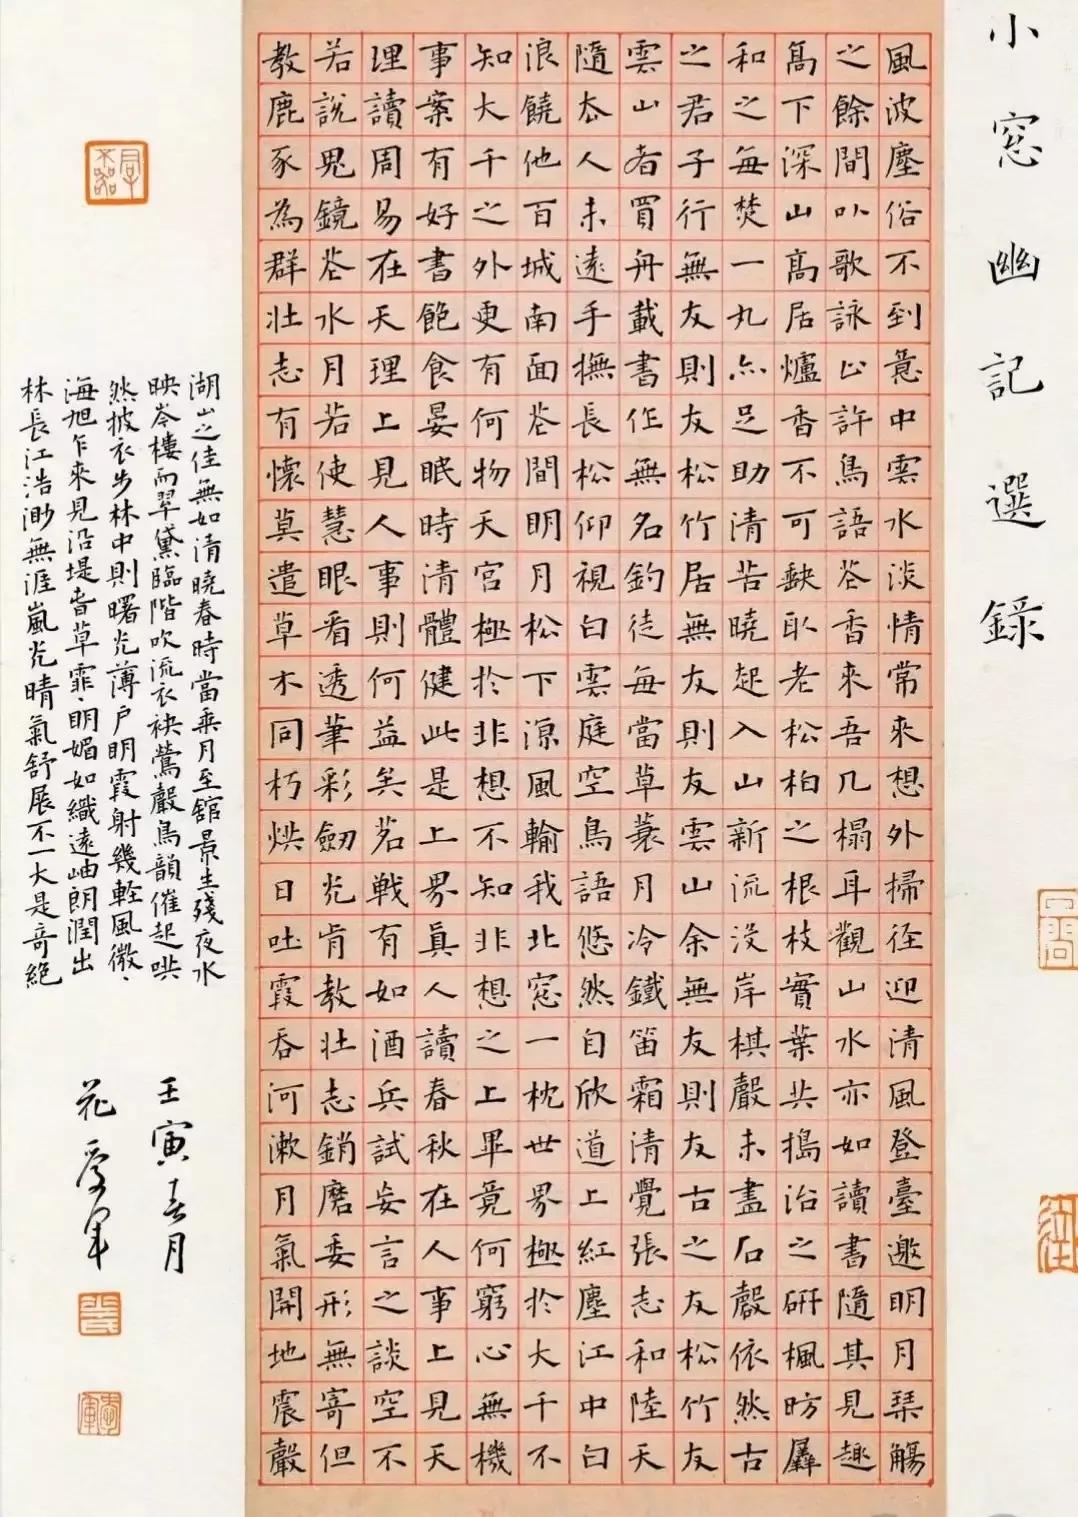 小窓幽記選錄
風波塵俗不到意中雲水淡情常來想外掃徑迎清風登臺邀明月琹觴
之餘間㕥歌詠止許鳥語芲香來吾几榻耳觀山水亦如讀書隨其見趣
髙下深山髙居爐香不可缺取老松柏之根枝實葉共搗治之研楓昉羼
和之每焚一丸亦足助清苦曉起入山新流沒岸棋聲未盡石磬依然古
之君子行無友則友松竹居無友則友雲山余無友則友古之友松竹友
雲山者買舟載書作無名釣徒每當草蓑月冷鐵笛霜清覺張志和陸天
隨去人未遠手撫長松仰視白雲庭空鳥語悠然自欣道上紅塵江中白
浪饒他百城南面芲間明月松下涼風輸我北窓一枕世界極於大千不
知大千之外更有何物天宮極於非想不知非想之上畢竟何窮心無機
事案有好書飽食晏眠時清體健此是上界真人讀春秋在人事上見天
理讀周易在天理上見人事則何益矣茗戰有如酒兵試妄言之談空不
若說鬼鏡芲水月若使慧眼看透筆彩劒光肯教壯志銷磨委形無寄但
教鹿豕為群壯志有懷莫遣草木同朽烘日吐霞吞河漱月氣開地震聲
湖山之佳無如清曉春時當乘月至館景生殘夜水
映岑樓而翠黛臨階吹流衣袂鶯聲鳥韻催起哄
然披衣步林中則曙光薄户明霞射幾輕風微〻
海旭乍來見沿堤春草霏〻明媚如織遠岫朗潤出
林長江浩渺無涯嵐光晴氣舒展不一大是奇絕
壬寅春月